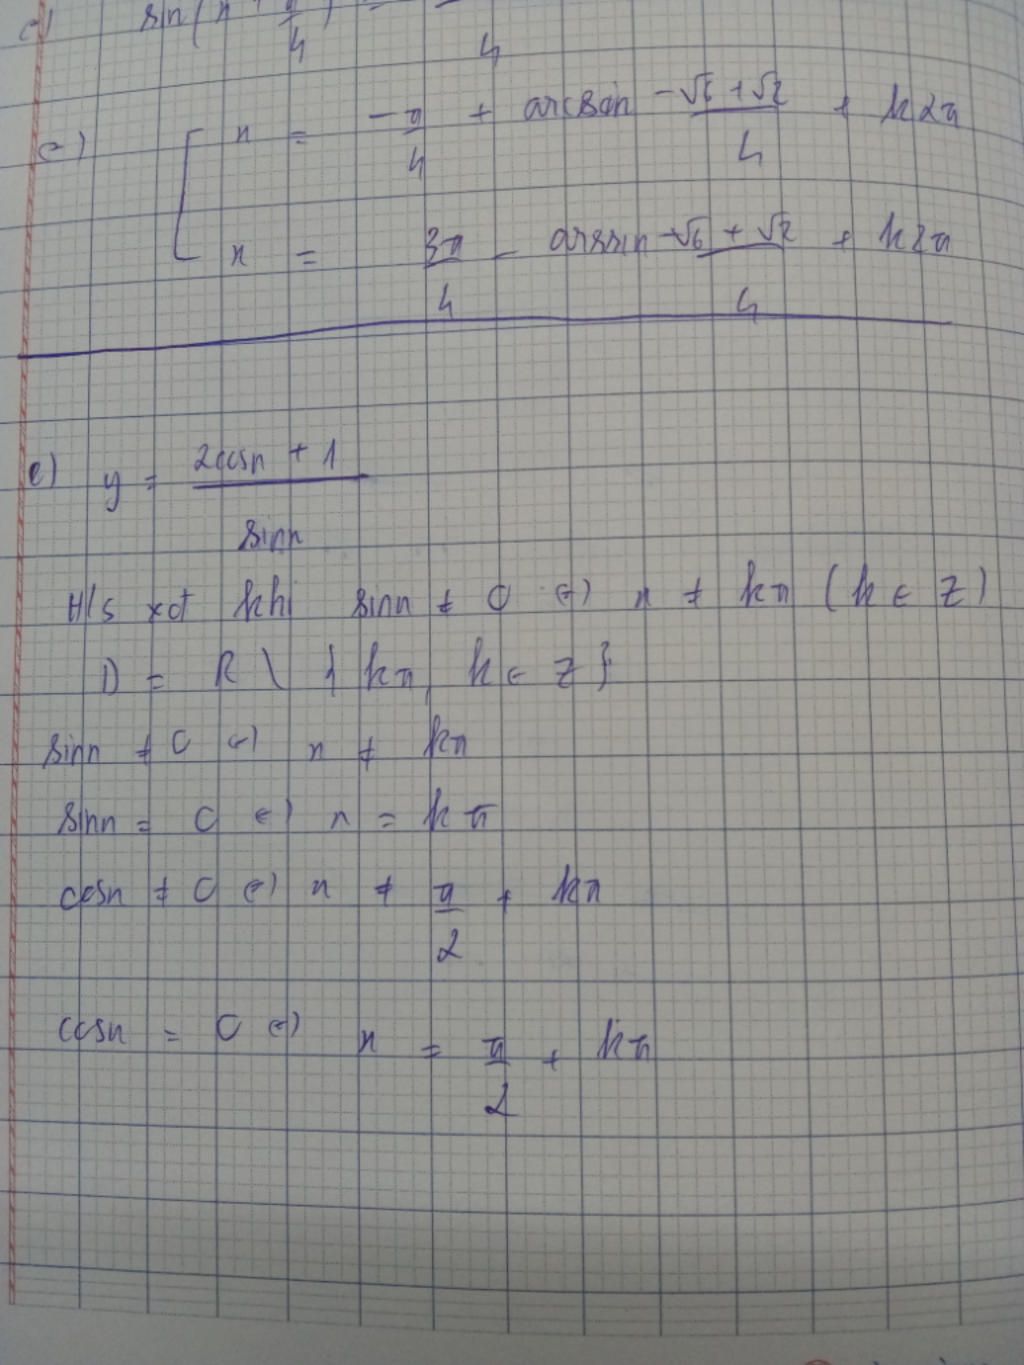 sin(x + π/4) =
4
c) [ x = -π/4 + arcsin (-√6 + √2)/4 + k2π
x = 3π/4 - arssin (-√6 + √2)/4 + k2π
e) y = (2cosx + 1)/sinx
H/s xđ khi sinx ≠ 0 <=> x ≠ kπ (k ∈ Z)
D = R \ { kπ, k ∈ Z }
sinx ≠ 0 <=> x ≠ kπ
sinx = 0 <=> x = kπ
cosx ≠ 0 <=> x ≠ π/2 + kπ
cosx = 0 <=> x = π/2 + kπ